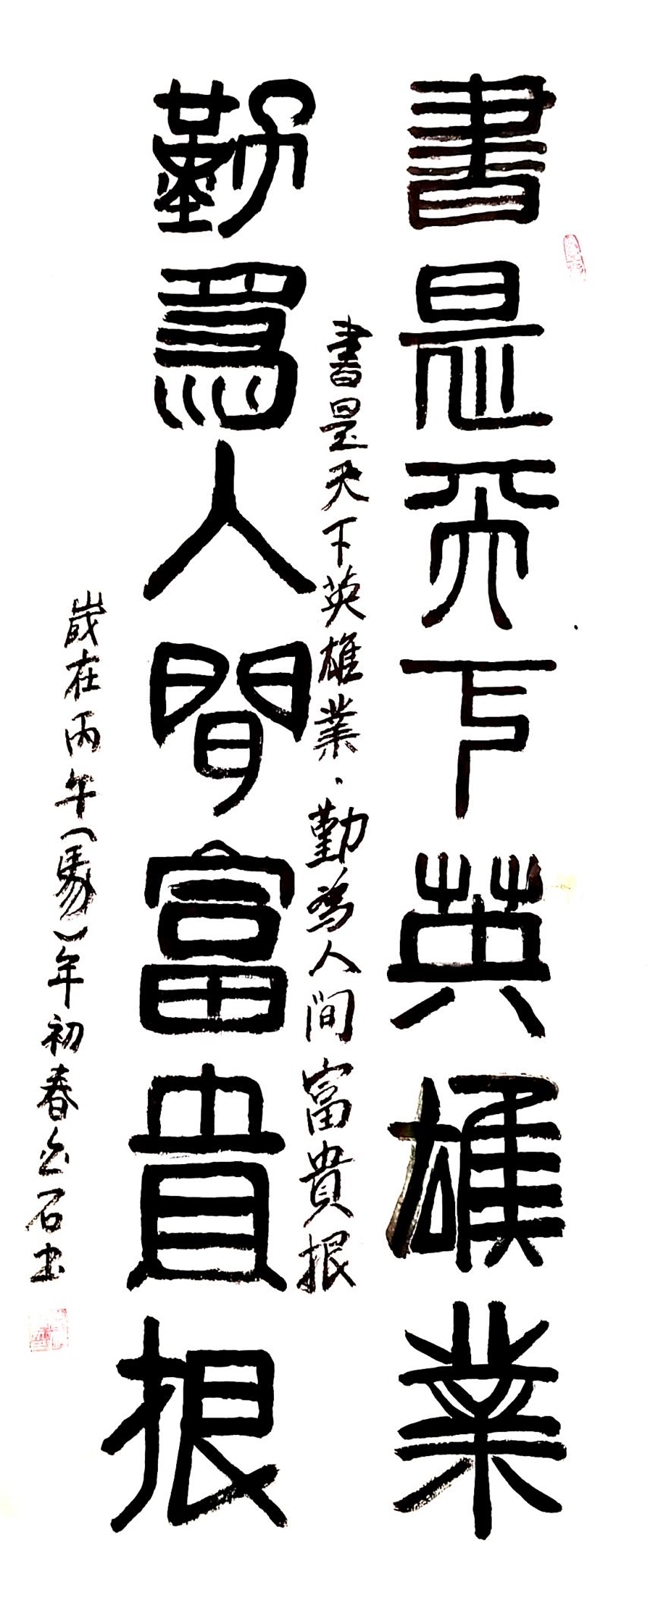 書是天下英雄業
勤為人間富貴根
書是天下英雄業、勤為人间富貴根
歲在丙午（馬）年初春
石书